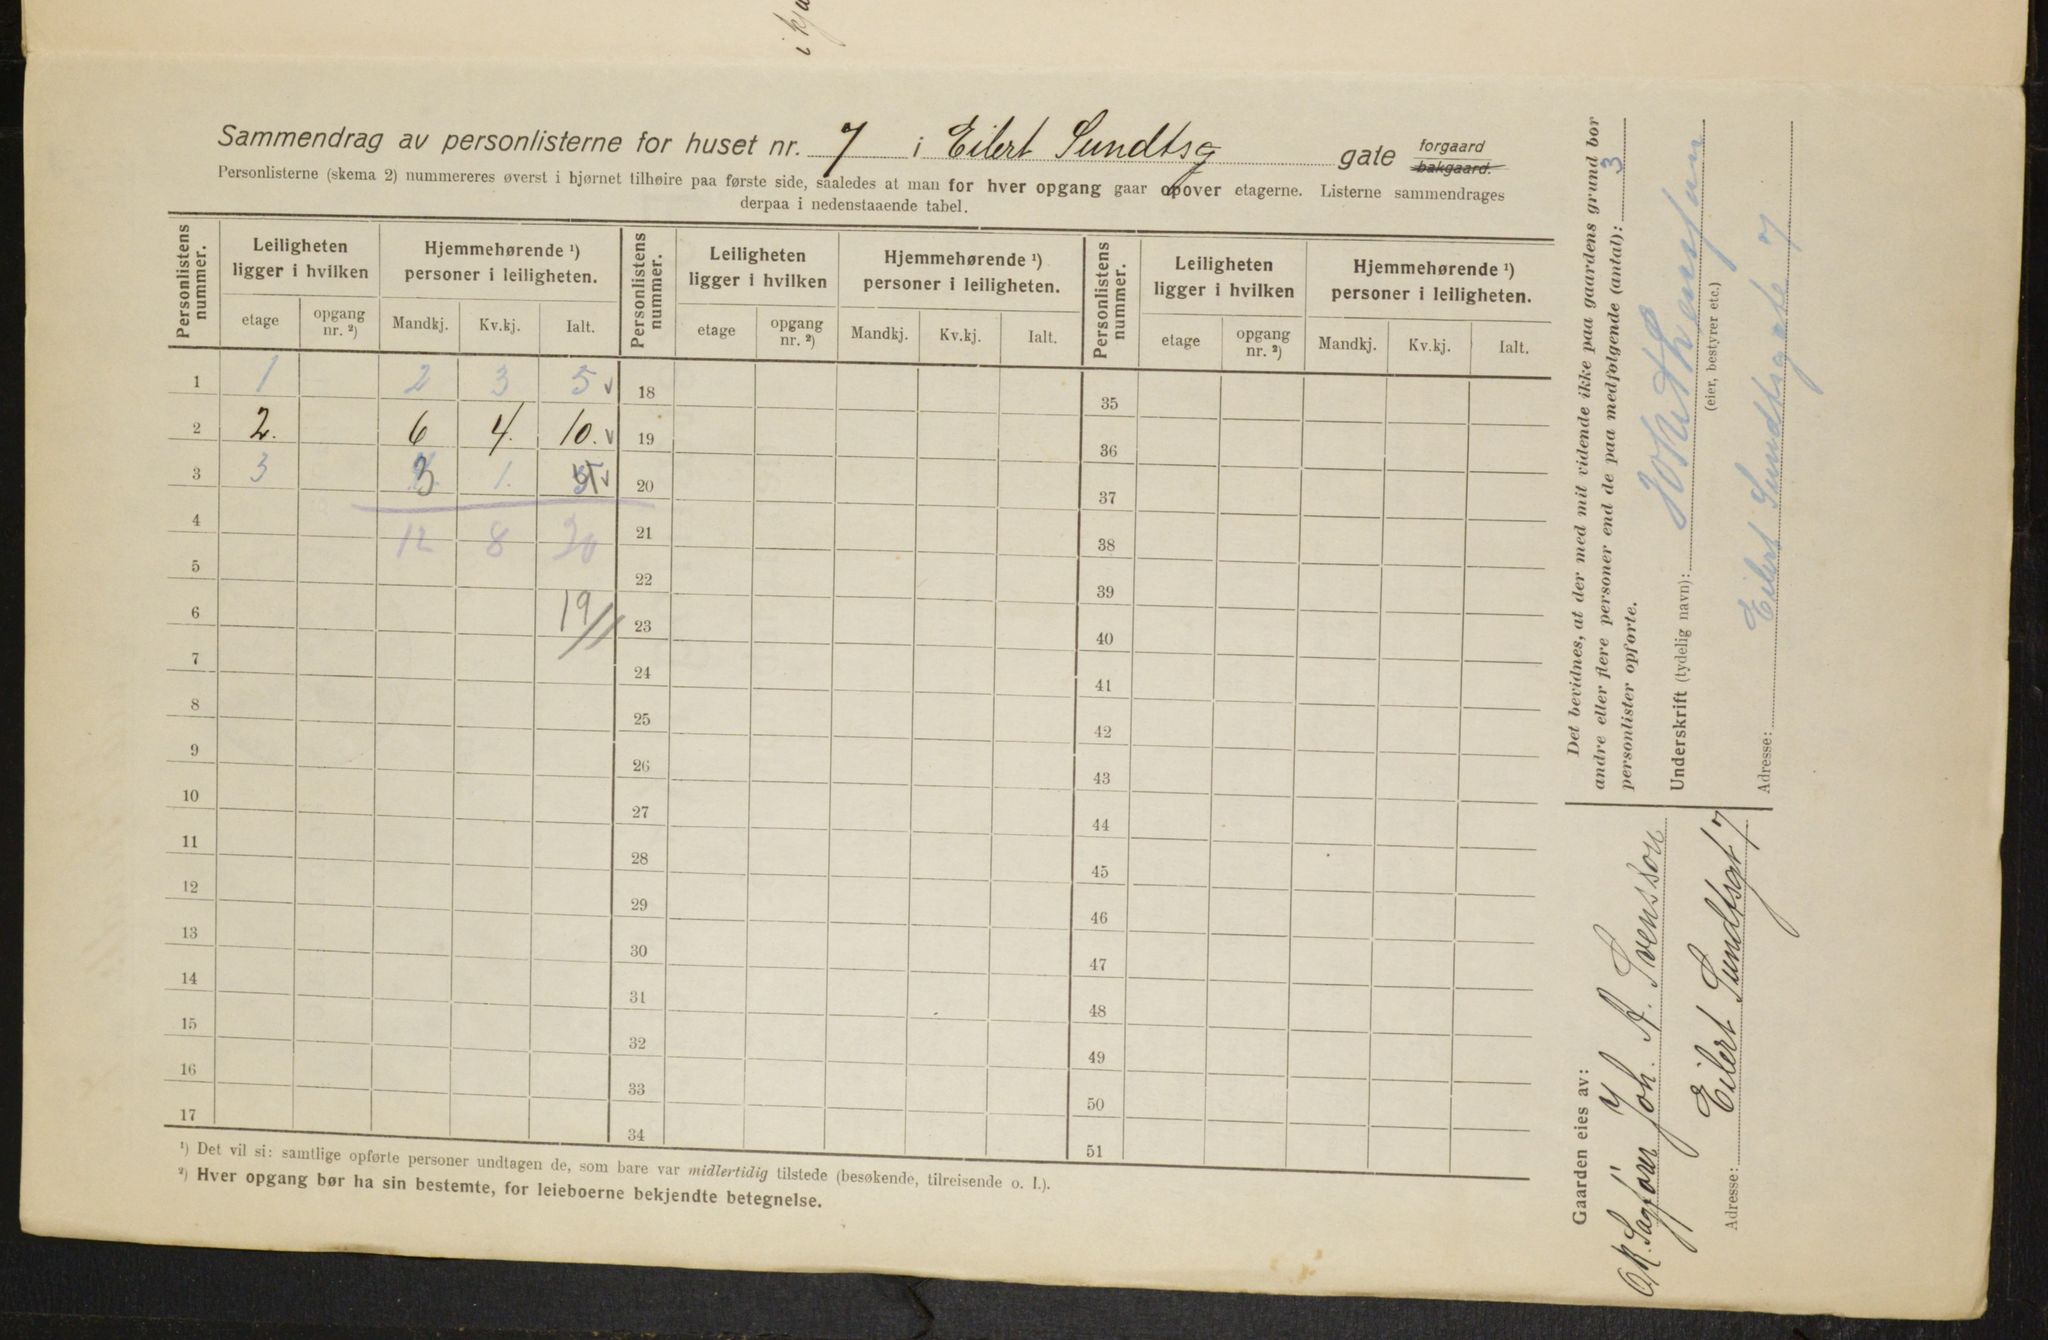 i kja
Sammendrag av personlisterne for huset nr. 7 i Eilert Sundtsg gate forgaard bakgaard.
Personlisterne (skema 2) nummereres øverst i hjørnet tilhøire paa første side, saaledes at man for hver opgang gaar opover etagerne. Listerne sammendrages
derpaa i nedenstaaende tabel.
Personlistens nummer. Leiligheten ligger i hvilken Hjemmehørende ¹) personer i leiligheten. Personlistens nummer. Leiligheten ligger i hvilken Hjemmehørende ¹) personer i leiligheten. Personlistens nummer. Leiligheten ligger i hvilken Hjemmehørende ¹) personer i leiligheten.
etage opgang nr. ²) Mandkj. Kv.kj. Ialt. etage opgang nr. ²) Mandkj. Kv.kj. Ialt. etage opgang nr. ²) Mandkj. Kv.kj. Ialt.
1 1 2 3 5 v 18 35
2 2. 6 4. 10. v 19 36
3 3 3 1. v 20 37
4 12 8 20 21 38
5 22 39
6 19 // 23 40
7 24 41
8 25 42
9 26 43
10 27 44
11 28 45
12 29 46
13 30 47
14 31 48
15 32 49
16 33 50
17 34 51
¹) Det vil si: samtlige opførte personer undtagen de, som bare var midlertidig tilstede (besøkende, tilreisende o. l.).
²) Hver opgang bør ha sin bestemte, for leieboerne bekjendte betegnelse.
Det bevidnes, at der med mit vidende ikke paa gaardens grund bor
andre eller flere personer end de paa medfølgende (antal): 3
personlister opførte.
Underskrift (tydelig navn):
(eier, bestyrer etc.)
Adresse: Eilert Sundtsgate 7
Gaarden eies av:
O.R. Sagfører Joh. A. Svensson
Adresse: Eilert Sundtsgt 7